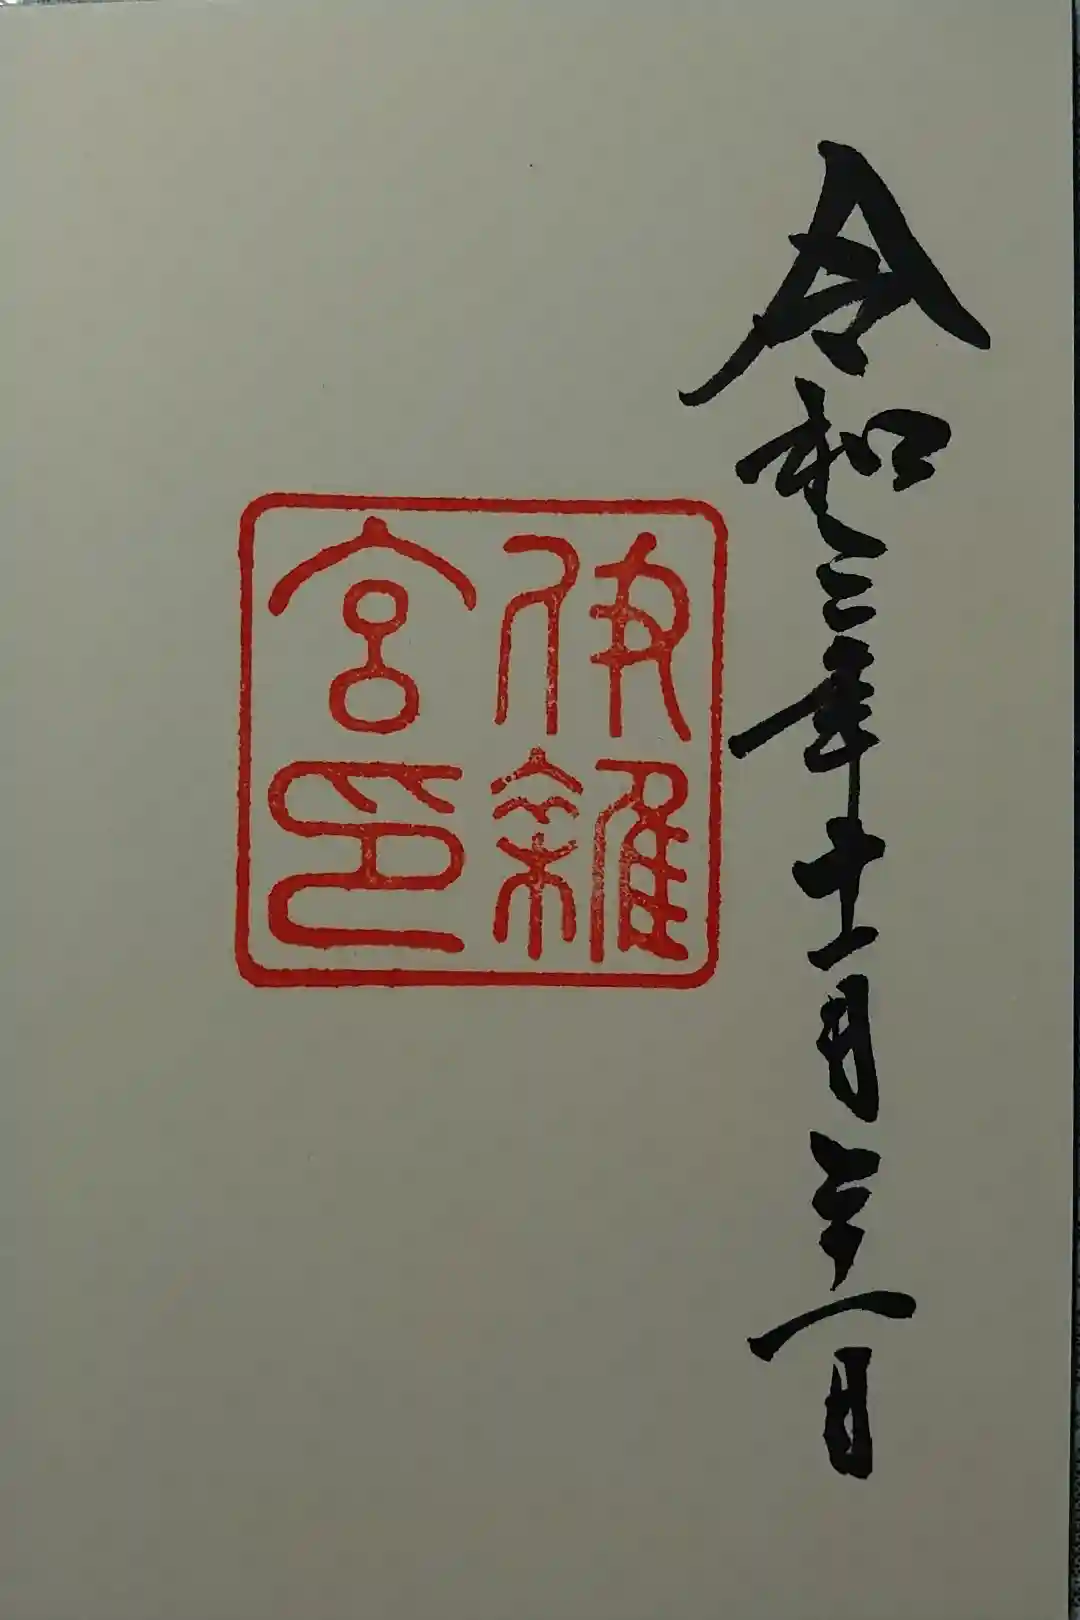 令和三年十一月二十一日
伊雜
宮印